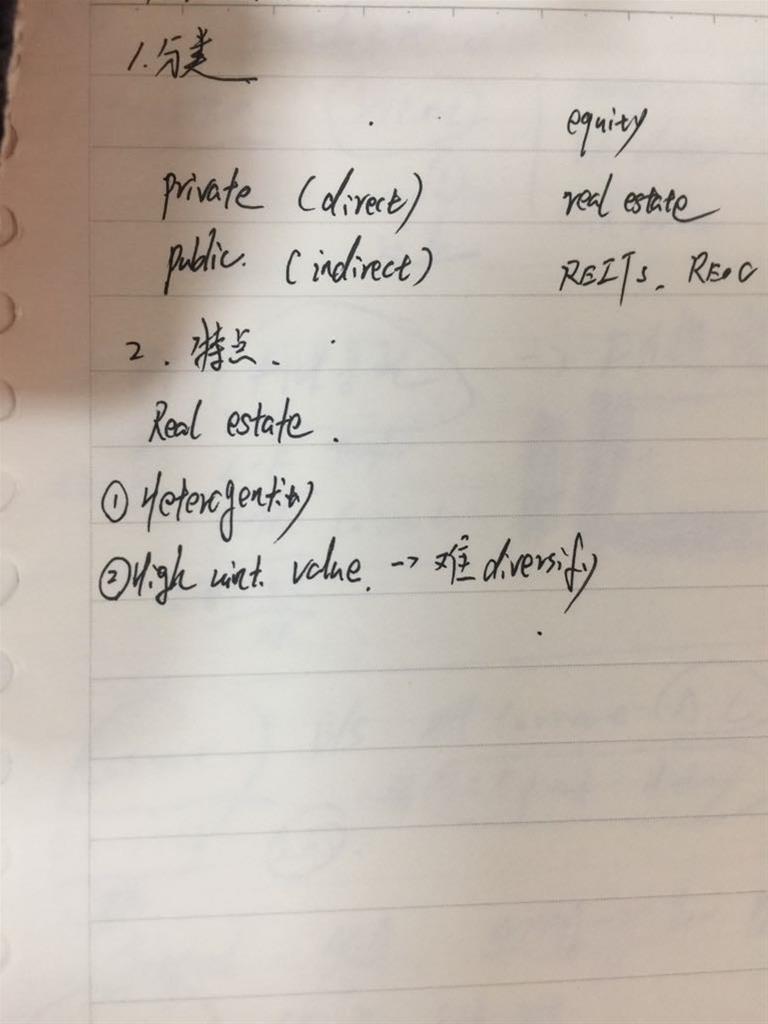 1. 分类
equity
private (direct) real estate
public. (indirect) REITs. REOC
2. 特点.
Real estate.
① Heterogentity
② High unit. value. -> 难 diversify